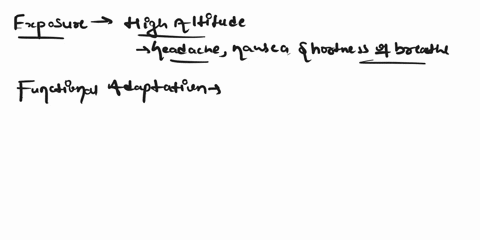 Exposure → High Altitude
→ headache, nausea shortness of breathe
Functional Adaptation →